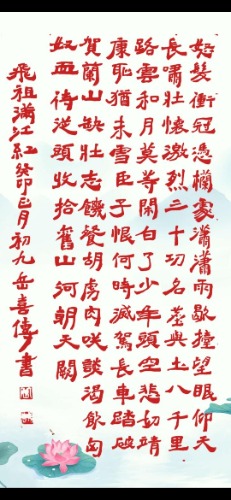 怒髮衝冠憑欄處瀟瀟雨歇擡望眼仰天
長嘯壯懷激烈三十功名塵與土八千里
路雲和月莫等閑白了少年頭空悲切靖
康恥猶未雪臣子恨何時滅駕長車踏破
賀蘭山缺壯志饑餐胡虜肉笑談渴飲匈
奴血待從頭收拾舊山河朝天闕
飛祖滿江紅癸卯正月初九岳喜書